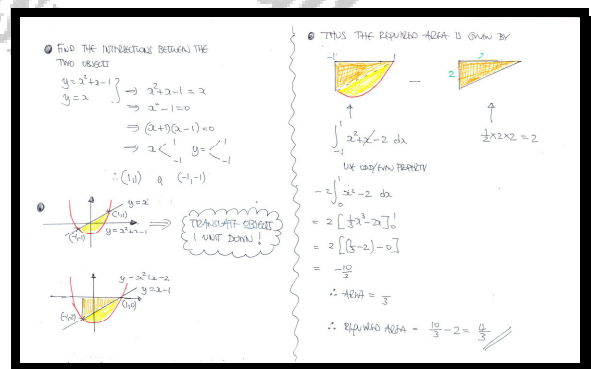 FIND THE INTERSECTIONS BETWEEN THE
TWO OBJECTS
y = x²+x-1
y = x
⇒ x²+x-1 = x
⇒ x²-1=0
⇒ (x+1)(x-1)=0
⇒ x< 1 -1 y=< 1 -1
∴ (1,1) & (-1,-1)
y=x
(1,1)
(-1,-1)
y=x²+x-1
⇒
TRANSLATE OBJECTS
1 UNIT DOWN!
y=x²+x-2
y=x-1
(1,0)
(-1,-2)
THUS THE REQUIRED AREA IS GIVEN BY
-1 1
2
2
∫₋₁¹ x²+x-2 dx
½×2×2 = 2
USE ODD/EVEN PROPERTY
= 2∫₀¹ x²-2 dx
= 2[⅓x³-2x]₀¹
= 2[(⅓-2)-0]
∴ AREA =
∴ REQUIRED AREA = 10/3 - 2 =